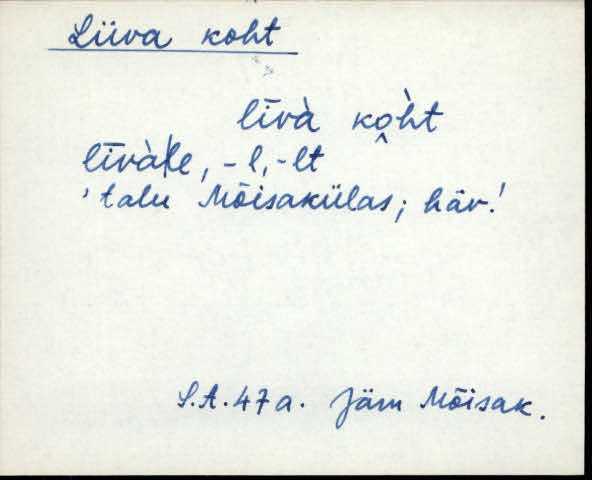 Liiva koht
līvà ko͔h̀t
līvà|le, -l, -lt
'talu Mõisakülas; häv.'
S.A. 47a. Jäm Mõisak.